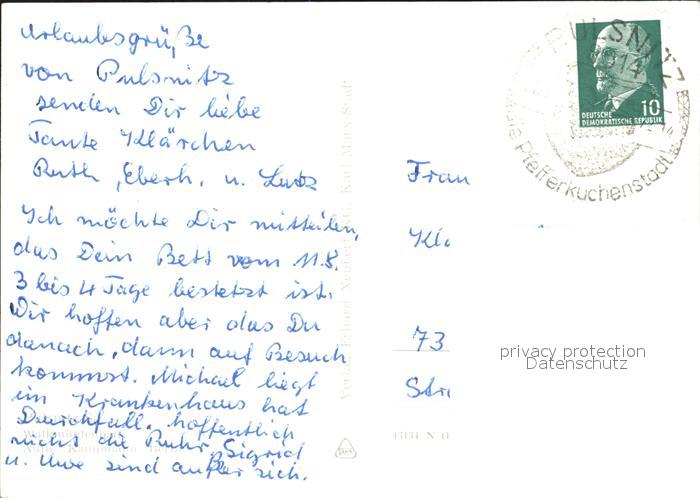 Urlaubsgrüße
von Pulsnitz
senden Dir liebe
Tante Klärchen
Ruth, Eberh. u. Lutz
Ich möchte Dir mitteilen,
das Dein Bett vom 11.8.
3 bis 4 Tage besetzt ist.
Wir hoffen aber das Du
danach, dann auf Besuch
kommst. Michael liegt
im Krankenhaus hat
Durchfall, hoffentlich
nicht die Ruhr. Sigrid
u. Uwe sind außer sich.
PULSNITZ
Pfefferkuchenstadt
10
DEUTSCHE
DEMOKRATISCHE REPUBLIK
Frau
73
privacy protection
Datenschutz